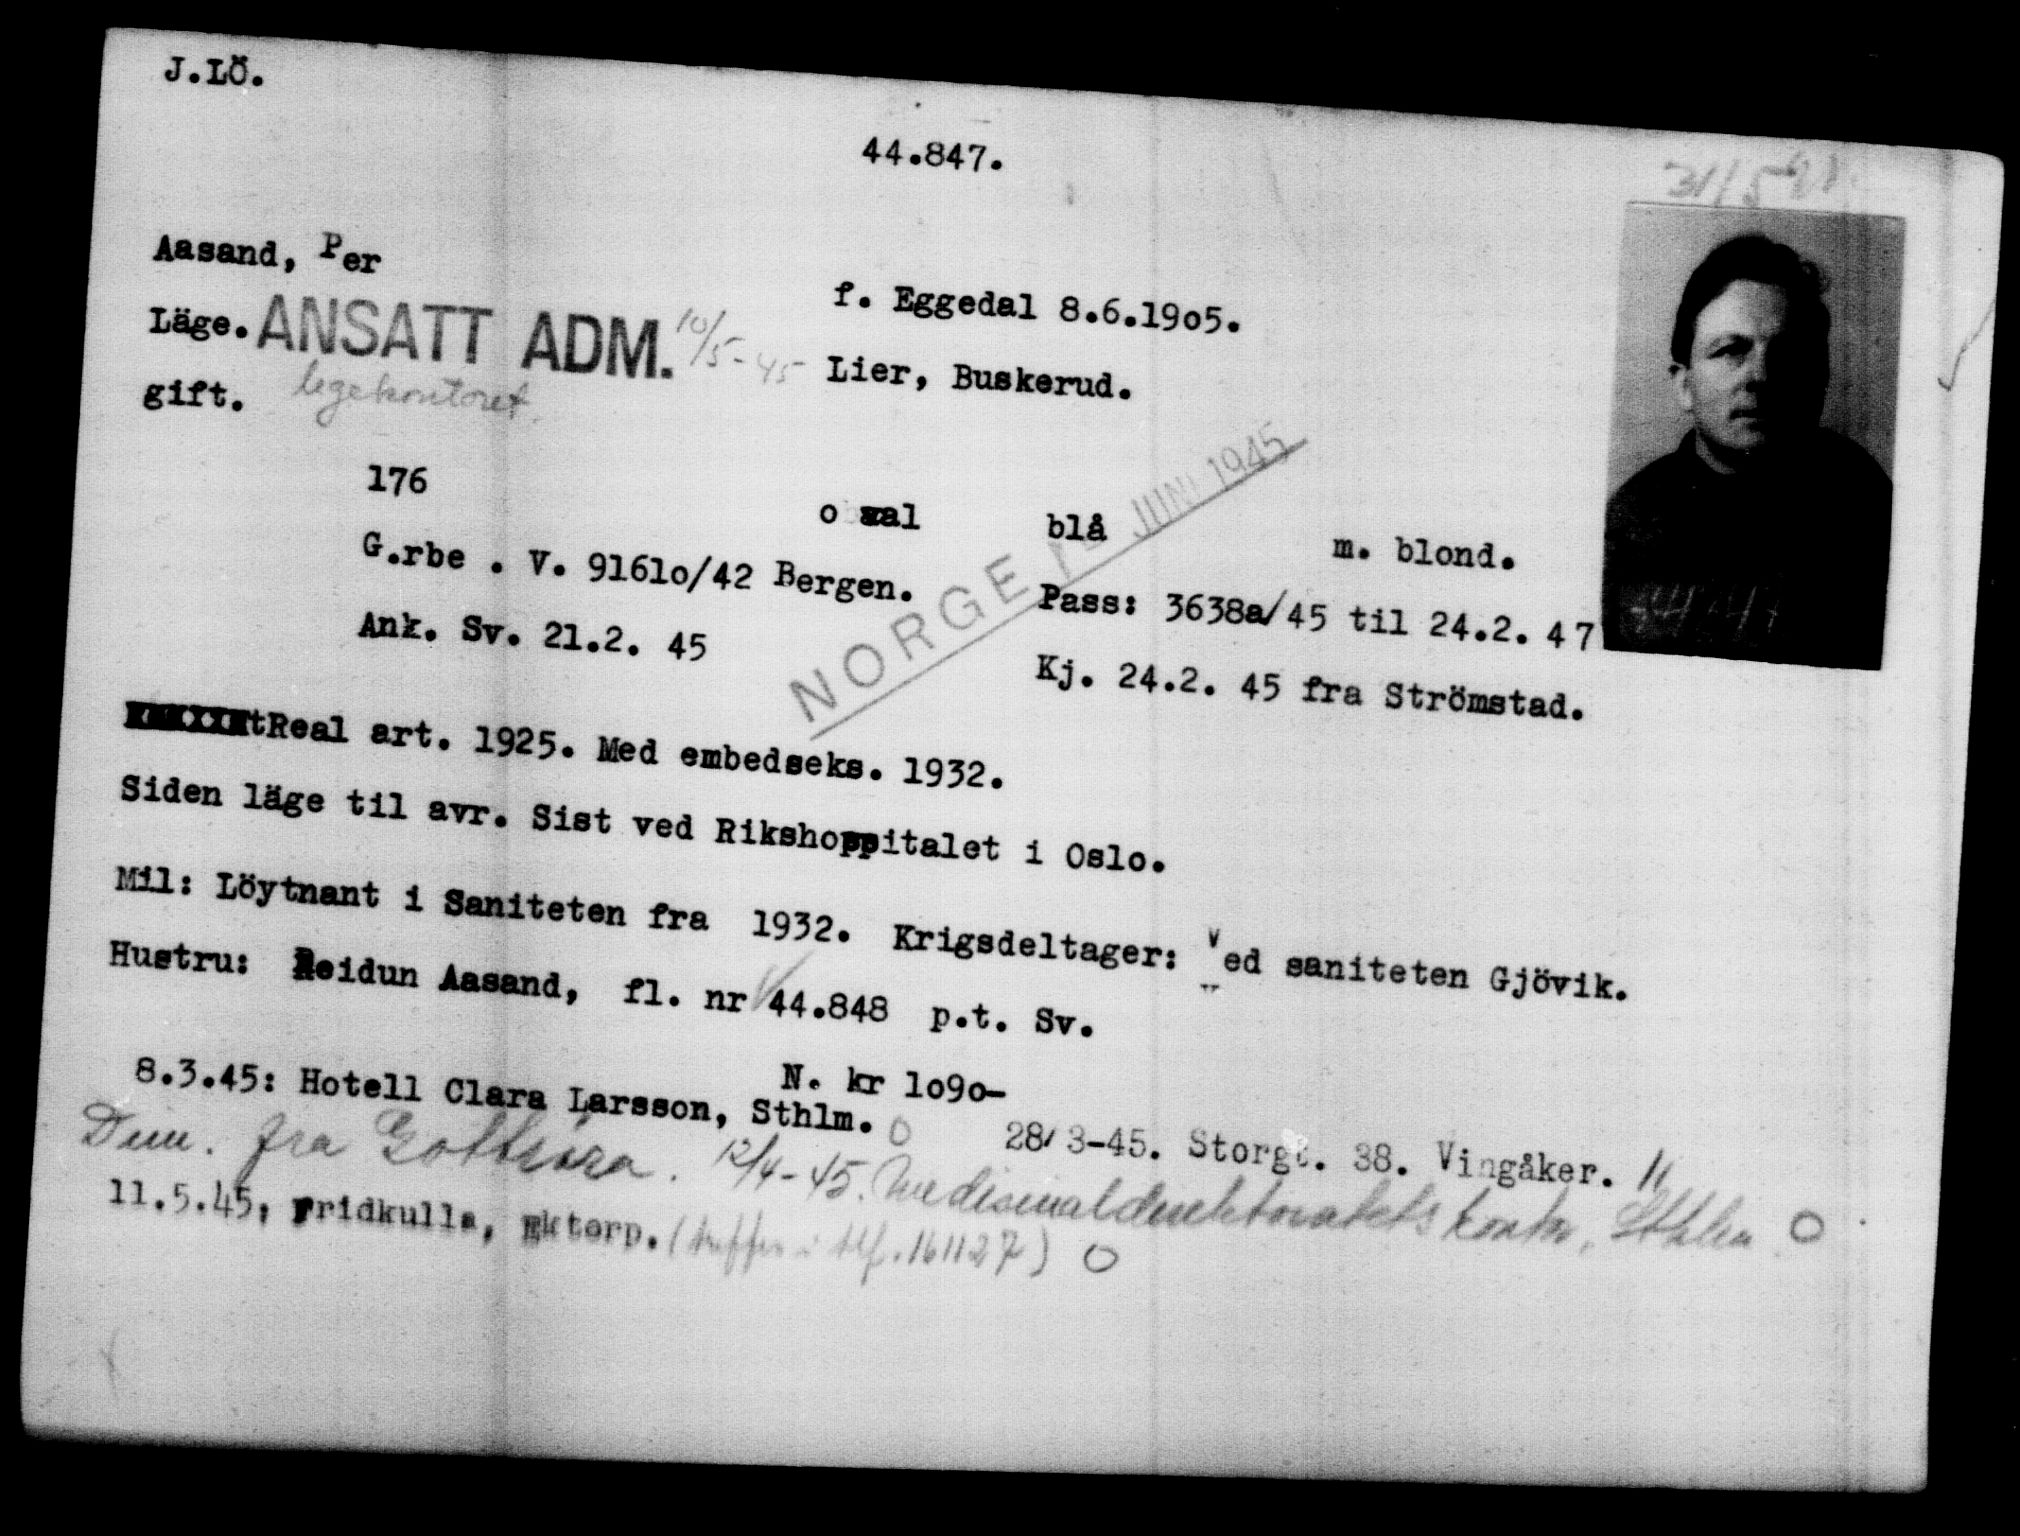 J.LÖ.
44.847.
Aasand, Per
f. Eggedal 8.6.19o5.
Läge. ANSATT ADM. 10/5-45
Lier, Buskerud.
gift. legekontoret.
176
o val
blå
m. blond.
G.rbe . V. 9161o/42 Bergen.
Pass: 3638a/45 til 24.2. 47
Ank. Sv. 21.2. 45
Kj. 24.2. 45 fra Strömstad.
NORGE JUNI 1945
Real art. 1925. Med embedseks. 1932.
Siden läge til avr. Sist ved Rikshoppitalet i Oslo.
Mil: Löytnant i Saniteten fra 1932. Krigsdeltager: Ved saniteten Gjövik.
Hustru: Reidun Aasand, fl. nr 44.848 p.t. Sv.
N. kr 1o9o-
8.3.45: Hotell Clara Larsson, Sthlm. O 28/3-45. Storgt. 38. Vingåker. 11
Dim. fra Gottröra. 12/4-45. Medisinaldirektoratets kontor, Sthlm O
11.5.45, Fridkulla, Ektorp. (treffes i tlf. 161127) O